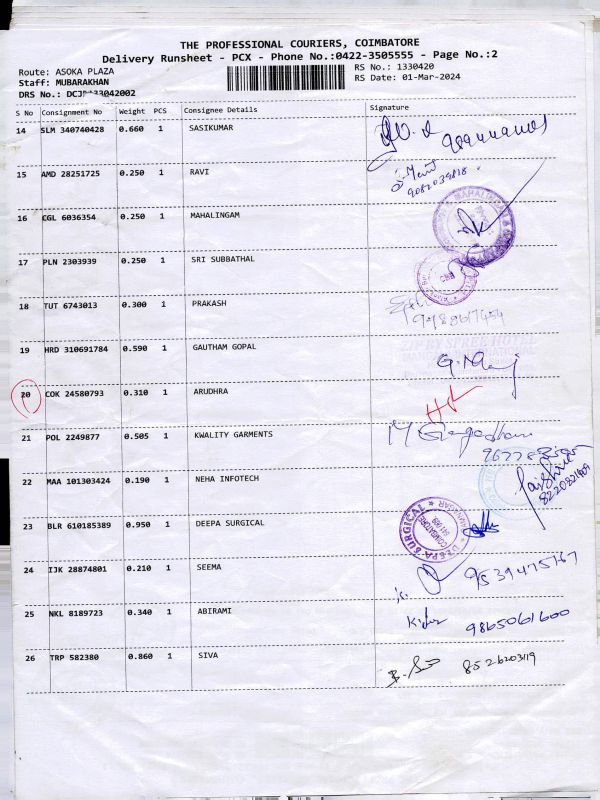 THE PROFESSIONAL COURIERS, COIMBATORE
Delivery Runsheet - PCX - Phone No.:0422-3505555 - Page No.:2
Route: ASOKA PLAZA
RS No.: 1330420
Staff: MUBARAKHAN
RS Date: 01-Mar-2024
DRS No.: 33042002
S No Consignment No Weight PCS Consignee Details Signature
14 SLM 340740428 0.660 1 SASIKUMAR
15 AMD 28251725 0.250 1 RAVI
9082039818
16 CGL 6036354 0.250 1 MAHALINGAM
17 PLN 2303939 0.250 1 SRI SUBBATHAL
18 TUT 6743013 0.300 1 PRAKASH
19 HRD 310691784 0.590 1 GAUTHAM GOPAL
ZIP BY SPREE HOTEL
20 COK 24580793 0.310 1 ARUDHRA
21 POL 2249877 0.505 1 KWALITY GARMENTS
22 MAA 101303424 0.190 1 NEHA INFOTECH
23 BLR 610185389 0.950 1 DEEPA SURGICAL
DEEPA SURGICAL
COIMBATORE
24 IJK 28874801 0.210 1 SEEMA
9539475767
25 NKL 8189723 0.340 1 ABIRAMI
9865061600
26 TRP 582380 0.860 1 SIVA
8526203119